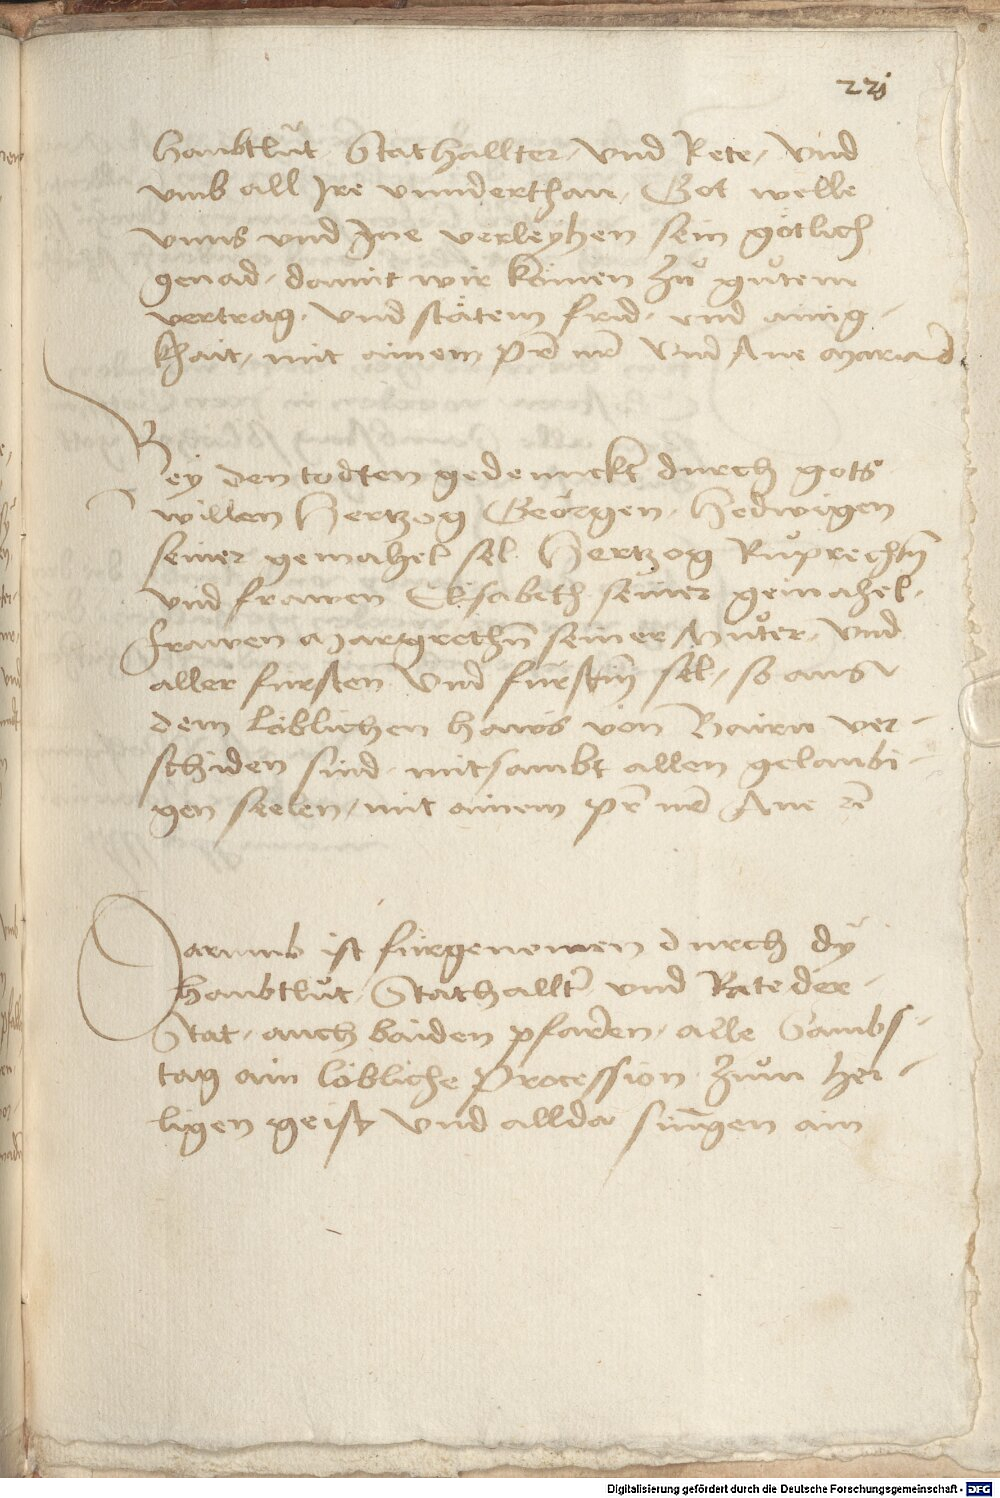 22j
haubtlut Stathallter, vnd Rete, vnd
vmb all Ire vnnderthan, Got welle
vnns vnd Ine verleyhen sein götlich
genad, damit wir kömen zů gůtem
vertrag, vnd stätem frid, vnd ainig-
khait, mit ainem pr̃ nr̃ vnd Aue maria
Bey den todten gedennckt durch gots
willen Hertzog Georgen, Hedwigen
seiner gemahel sel. Hertzog Růprechtn̄
vnd frawen Elisabeth seiner gemahel.
frawen Margrethn̄ seiner Můter, vnd
aller fursten vnd fürstin̄ sel, so aus
dem löblichen haws von Bairn ver-
schiden sind, mitsambt allen gelaubi-
gen seelen, mit ainem pr̃ nr̃ Aue
Darumb ist fürgenomen durch dÿ
haubtlut, Stathallt̃ vnd Rate der
Stat, auch baiden pfaren, alle Sambs-
tag ain löbliche Procession zum hei-
ligen geist vnd allda singen ain
Digitalisierung gefördert durch die Deutsche Forschungsgemeinschaft - DFG